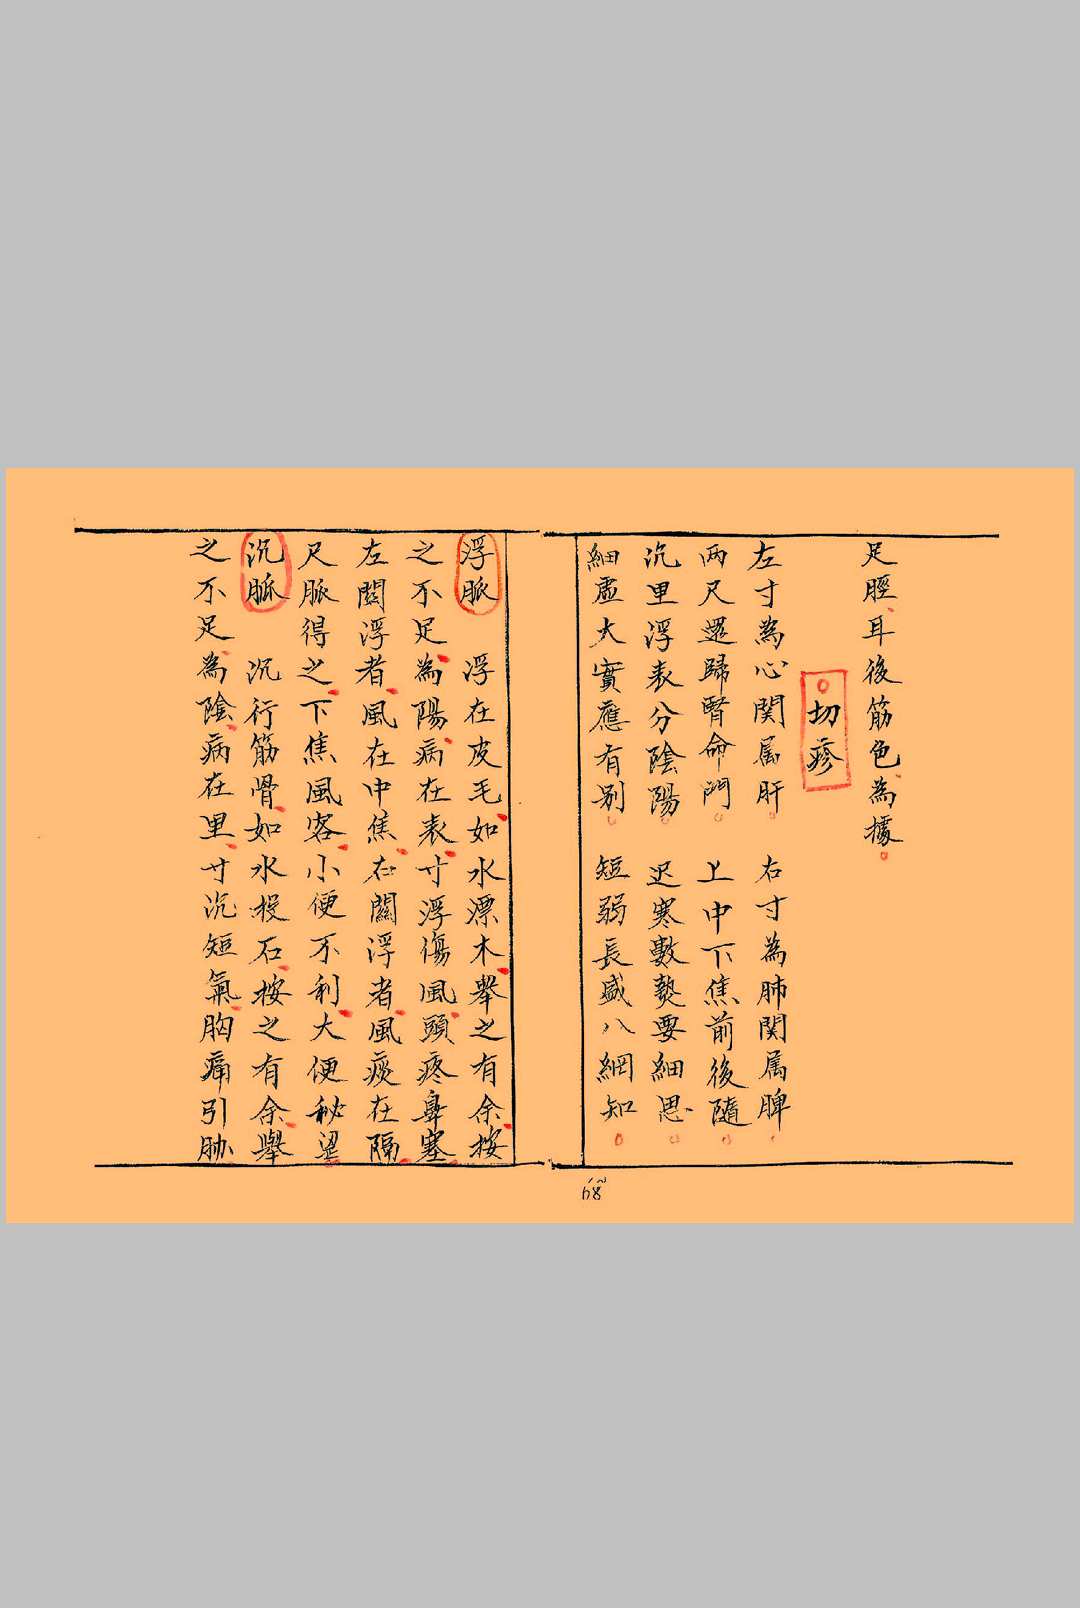 足脛、耳後筋色為據。
切疹
左寸為心関属肝。 右寸為肺関属脾。
两尺還歸腎命門。 上中下焦前後隨。
沉里浮表分陰陽。 迟寒數熱要細思。
細虛大實應有别。 短弱長盛八網知。
浮脈 浮在皮毛、如水漂木、舉之有余、按
之不足、為陽、病在表、寸浮傷風、頭疼鼻塞、
左関浮者、風在中焦、右關浮者、風痰在隔、
尺脈得之、下焦風客、小便不利、大便秘澀。
沉脈 沉行筋骨、如水投石、按之有余、舉
之不足、為陰、病在里、寸沉短氣、胸痛引胁、
68